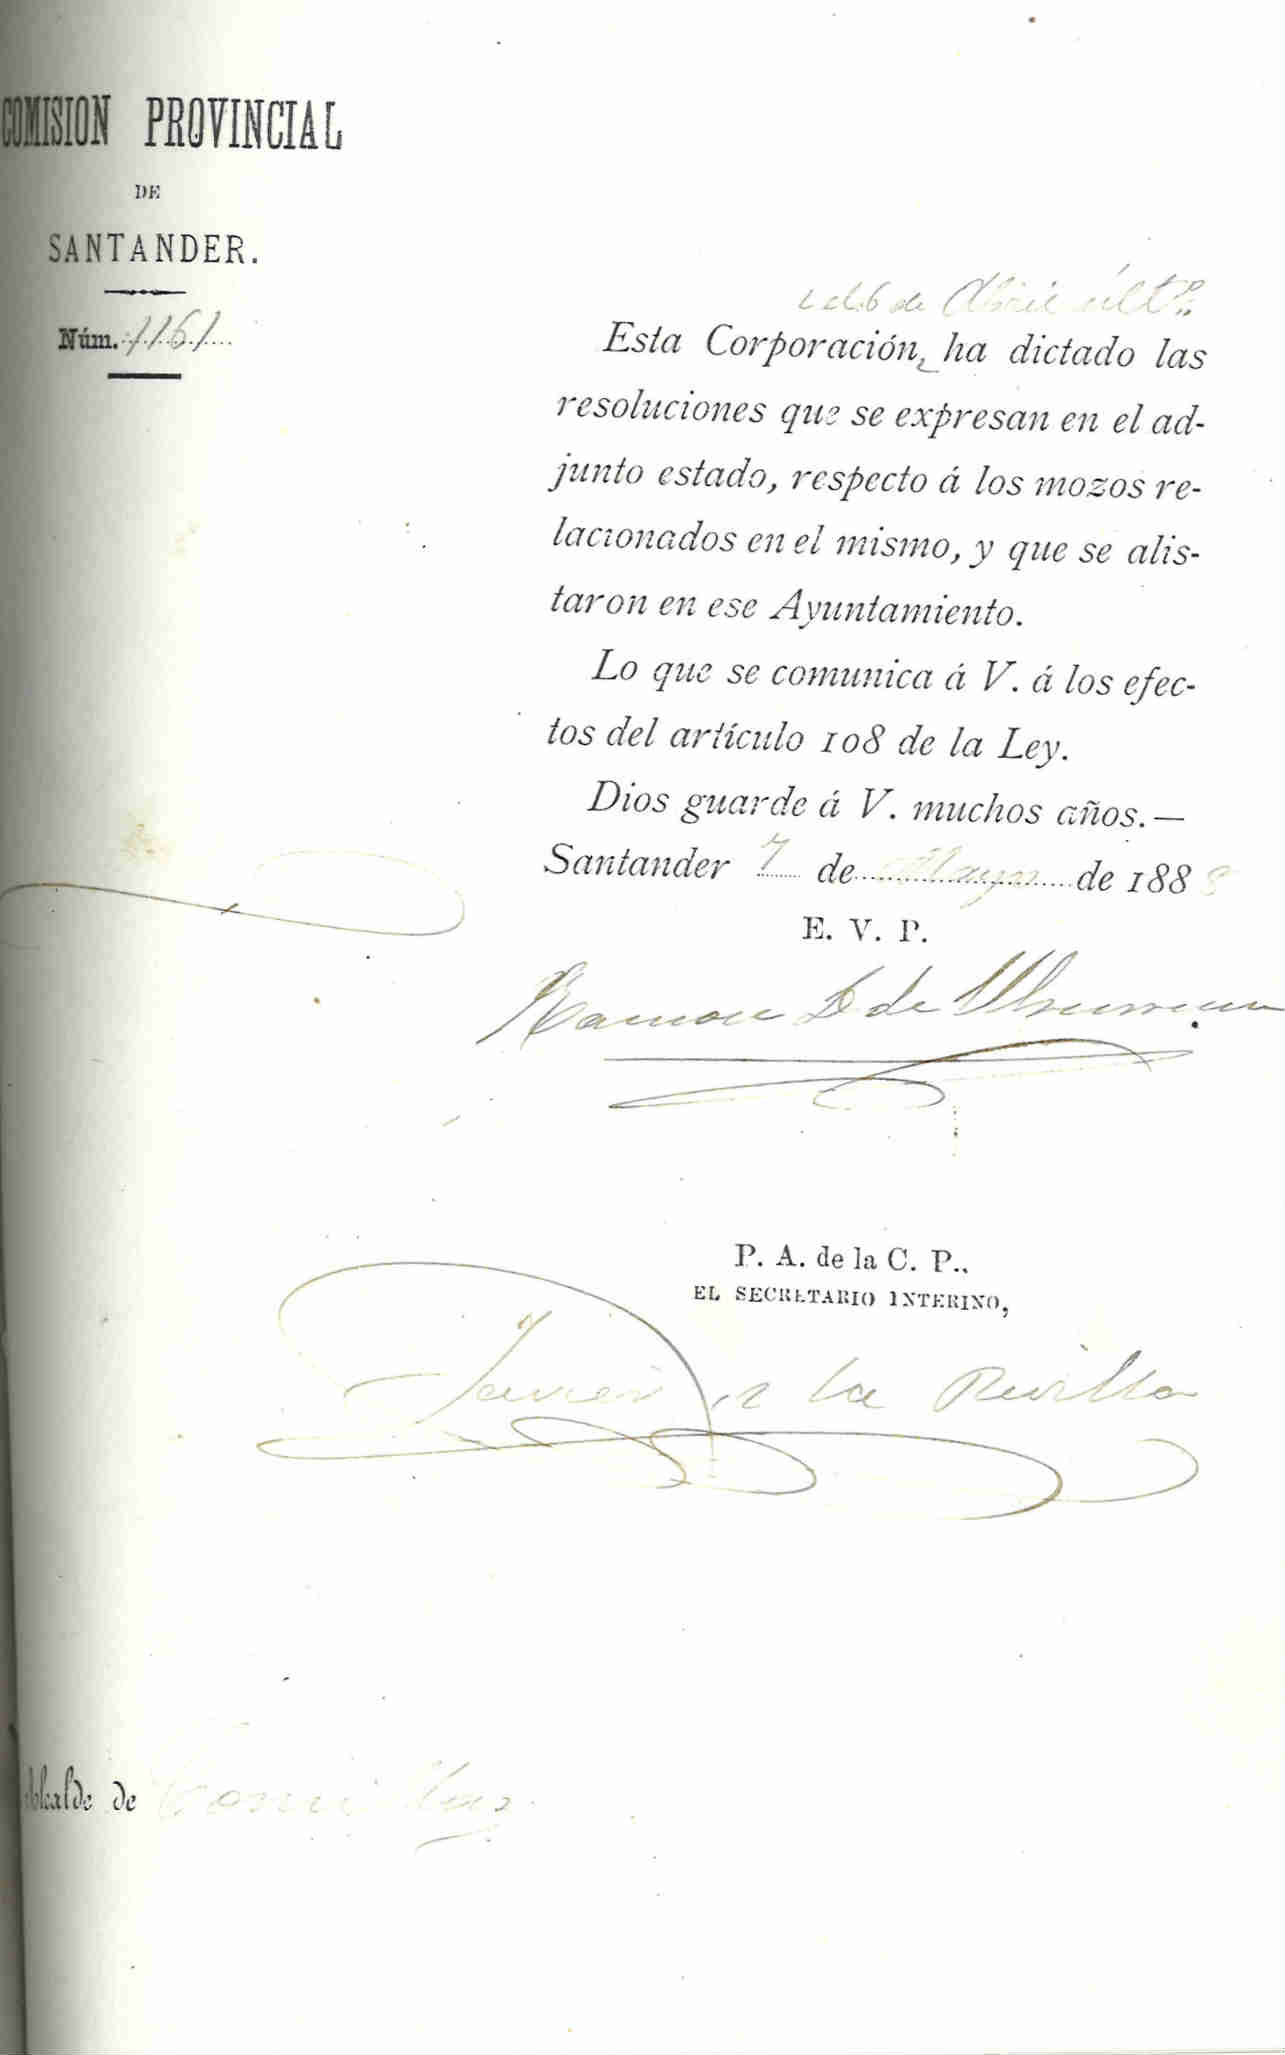 COMISION PROVINCIAL
DE
SANTANDER.
Núm. 1161
6 de Abril últº
Esta Corporación, ha dictado las
resoluciones que se expresan en el ad-
junto estado, respecto á los mozos re-
lacionados en el mismo, y que se alis-
taron en ese Ayuntamiento.
Lo que se comunica á V. á los efec-
tos del artículo 108 de la Ley.
Dios guarde á V. muchos años.—
Santander 7 de Mayo de 1888
E. V. P.
Ramon de
P. A. de la C. P.,
EL SECRETARIO INTERINO,
Javier de la Revilla
Alcalde de Comillas